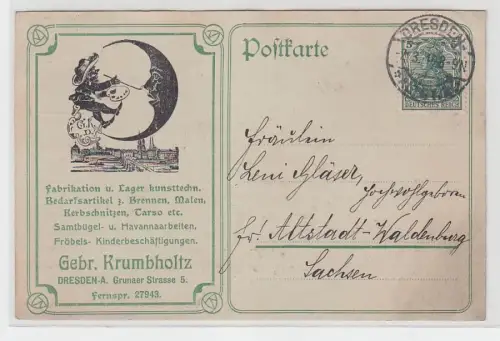 Postkarte
DRESDEN
DEUTSCHES REICH
G.K.
D.
Fabrikation u. Lager kunsttechn.
Bedarfsartikel z. Brennen, Malen,
Kerbschnitzen, Tarso etc.
Samtbügel- u. Havannaarbeiten,
Fröbels- Kinderbeschäftigungen.
Gebr. Krumbholtz
DRESDEN-A. Grunaer Strasse 5.
Fernspr. 27943.
Fräulein
Leni Gläser,
Hochwohlgeboren
Altstadt-Waldenburg
Sachsen